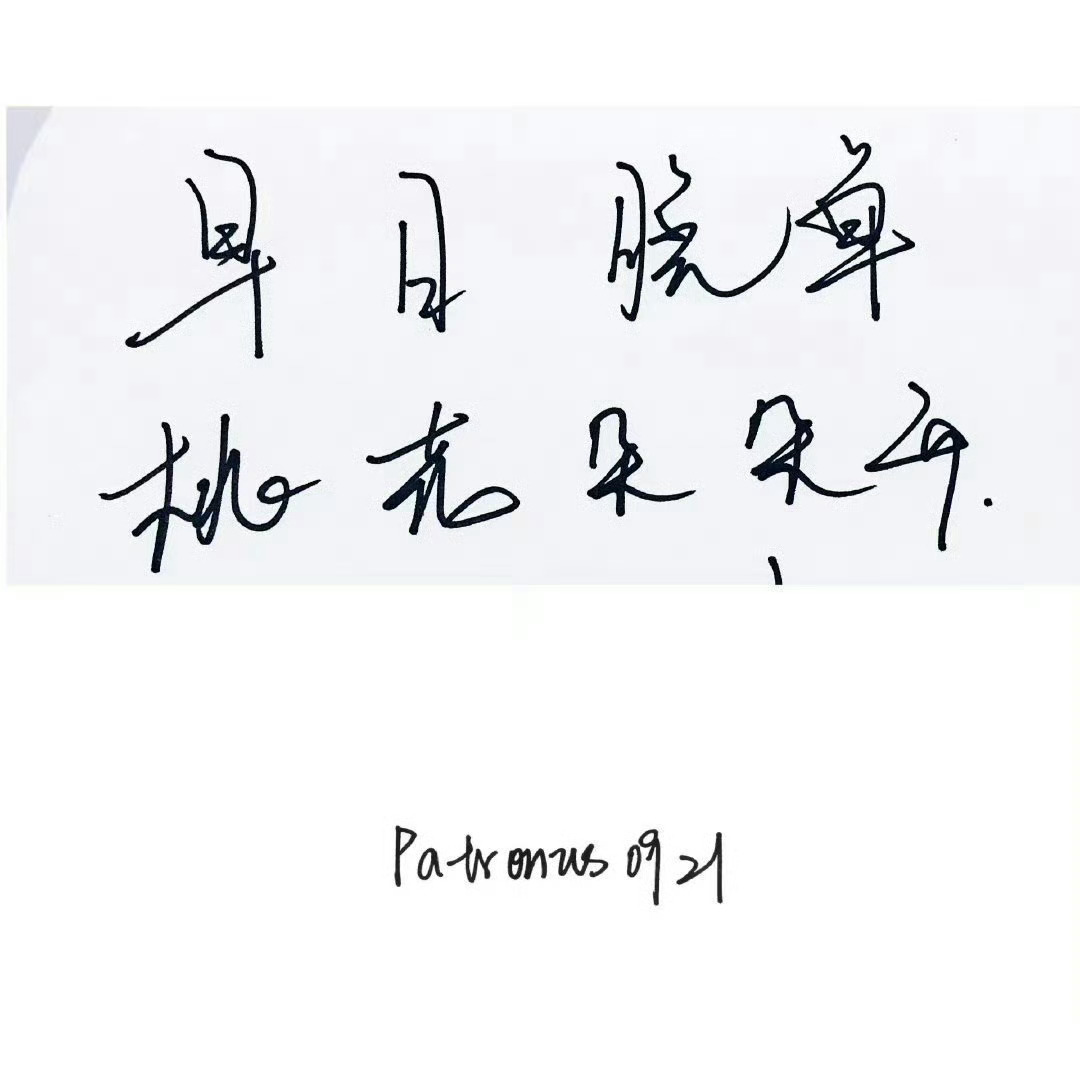 早日脱单
桃花朵朵开.
Patronus 0921